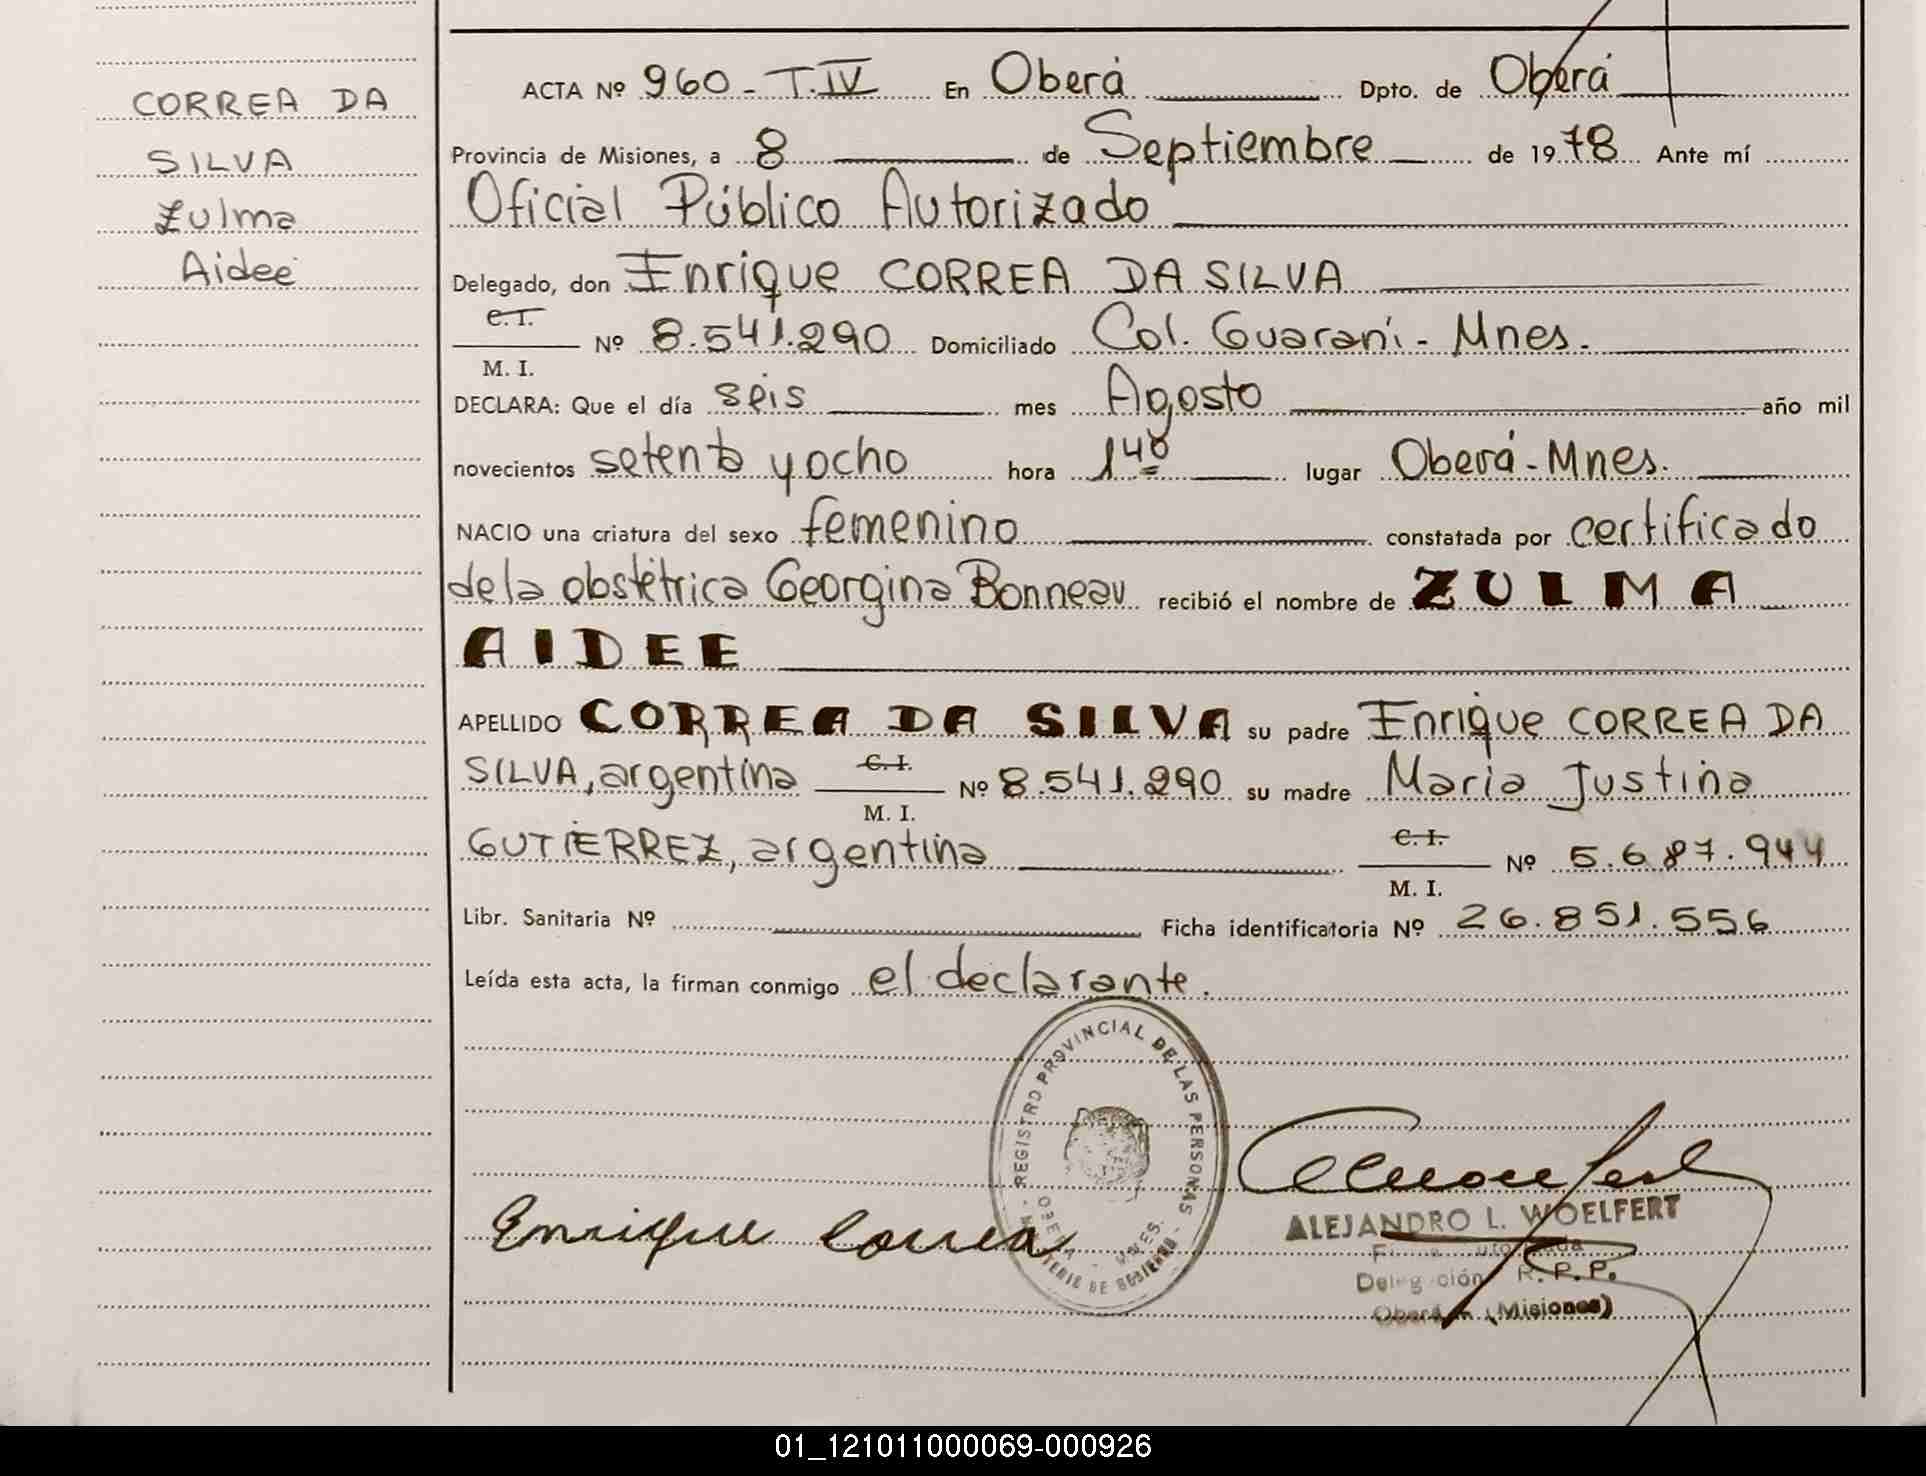 CORREA DA
SILVA
Zulma
Aidee
ACTA Nº 960 - T.IV En Oberá Dpto. de Oberá
Provincia de Misiones, a 8 de Septiembre de 1978 Ante mí
Oficial Público Autorizado
Delegado, don Enrique CORREA DA SILVA
C.I.
M. I. Nº 8.541.290 Domiciliado Col. Guaraní - Mnes.
DECLARA: Que el día seis mes Agosto año mil
novecientos setenta y ocho hora 1 40 lugar Oberá - Mnes.
NACIO una criatura del sexo femenino constatada por certificado
de la obstétrica Georgina Bonneau recibió el nombre de ZULMA
AIDEE
APELLIDO CORREA DA SILVA su padre Enrique CORREA DA
SILVA, argentina C.I. M. I. Nº 8.541.290 su madre Maria Justina
GUTIERREZ, argentina C.I. M. I. Nº 5.687.944
Libr. Sanitaria Nº Ficha identificatoria Nº 26.851.556
Leída esta acta, la firman conmigo el declarante.
REGISTRO PROVINCIAL DE LAS PERSONAS
OBERA - MNES.
DE GOBIERNO
Enrique Correa
ALEJANDRO L. WOELFERT
Delegación R.P.P.
Oberá (Misiones)
01_121011000069-000926